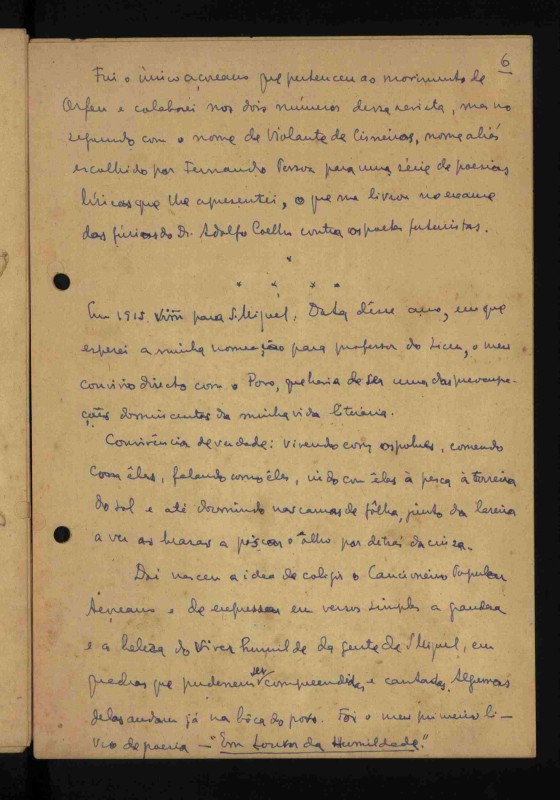 6
Fui o único açoreano que pertenceu ao movimento de
Orfeu e colaborei nos dois números dessa revista, mas no
segundo com o nome de Violante de Cisneiros, nome aliás
escolhido por Fernando Pessoa para uma série de poesias
líricas que lhe apresentei, o que me livrou no exame
das fúrias do Dr. Adolfo Coelho contra os poetas futuristas.
*
* * * *
Em 1915 vim para S. Miguel. Data dêsse ano, em que
esperei a minha nomeação para professor do Liceu, o meu
convívio directo com o Povo, que havia de ser uma das preocupa-
ções dominantes da minha vida literária.
Convivência de verdade: vivendo com os pobres, comendo
com êles, falando como êles, indo com êles à pesca à torreira
do sol e até dormindo nas camas de fôlha, junto da lareira
a ver as brasas a piscar o ôlho por detrás da cinza.
Daí nasceu a ideia de coligir o Cancioneiro Popular
Açoreano e de expressar em versos simples a grandeza
e a beleza do viver humilde da gente de S. Miguel, em
quadras que pudessem ser compreendidas e cantadas. Algumas
delas andam já na bôca do povo. Foi o meu primeiro li-
vro de poesia — "Em Louvor da Humildade."